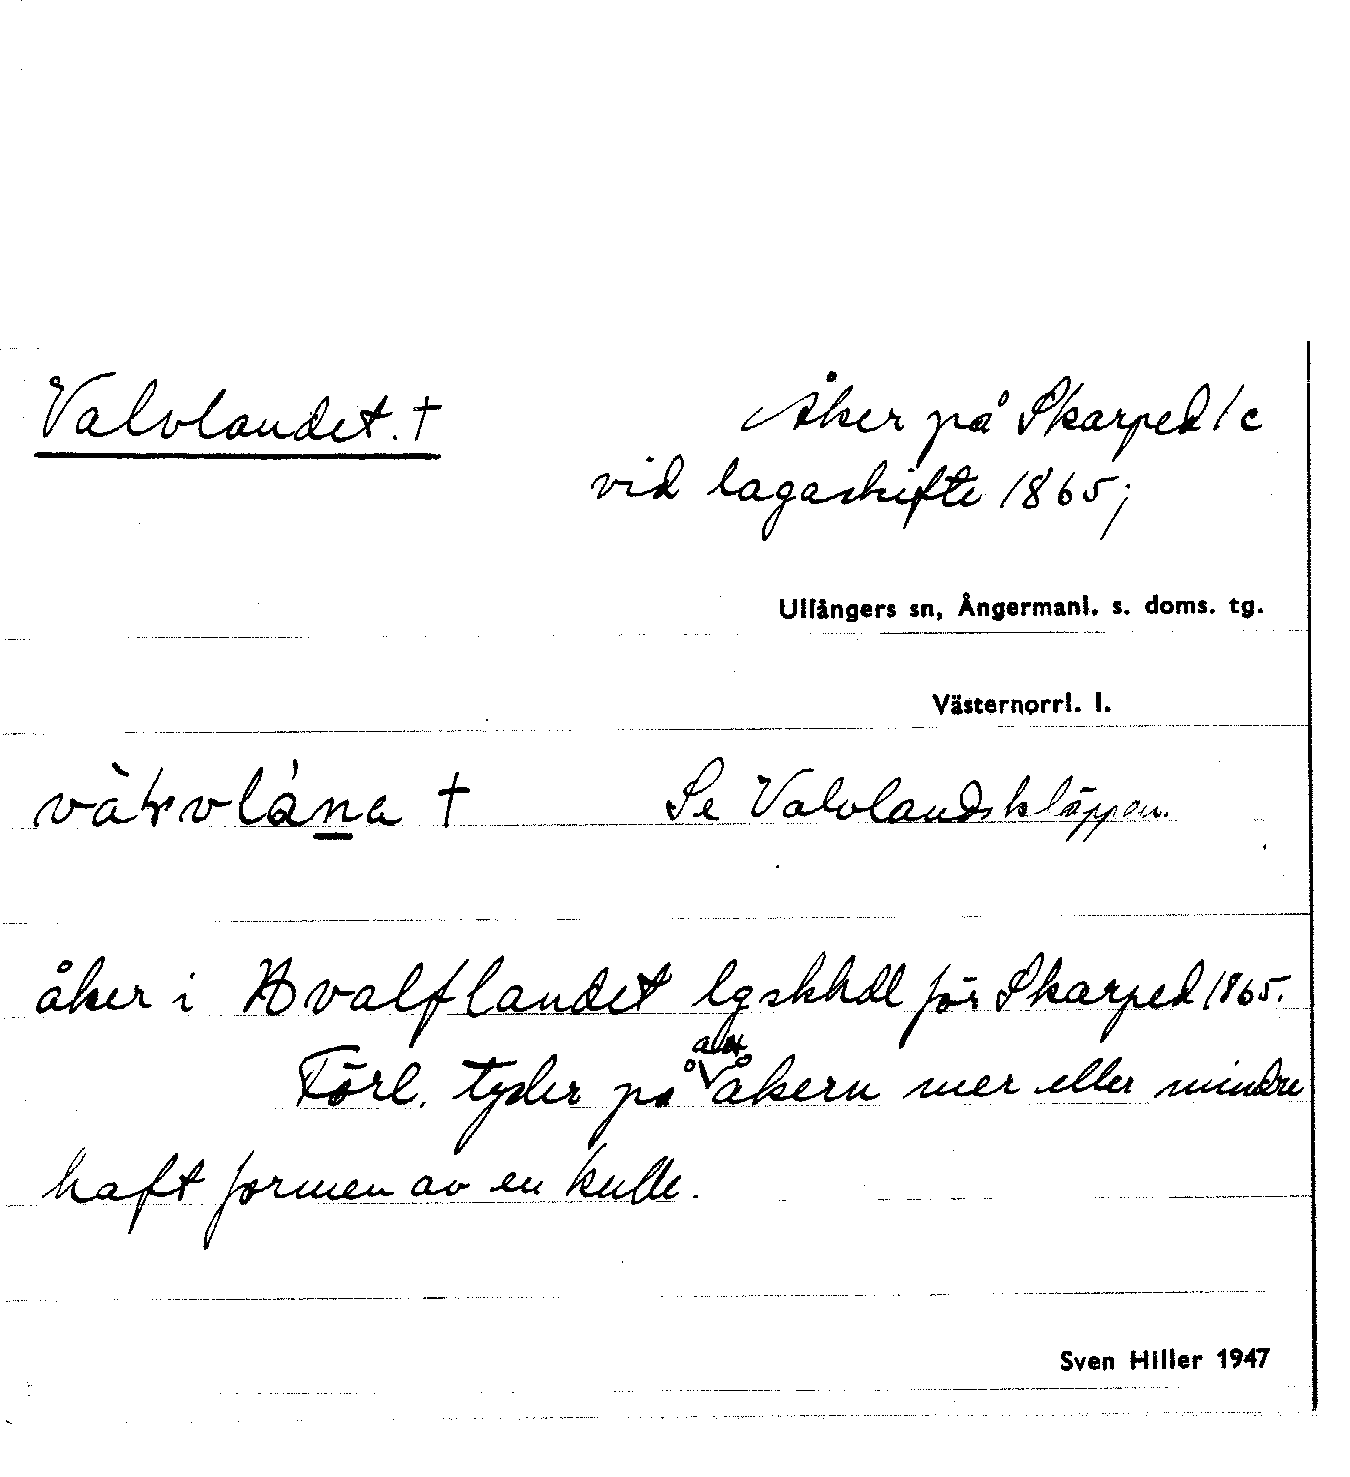 Valvlandet. †
Åker på Skarped 1c
vid lagaskifte 1865;
Ullångers sn, Ångermanl. s. doms. tg.
Västernorrl. l.
†
Se Valvlandskläppen.
åker i Hvalflandet lgskhdl för Skarped 1865.
Förl. tyder på att åkern mer eller mindre
haft formen av en kulle.
Sven Hiller 1947